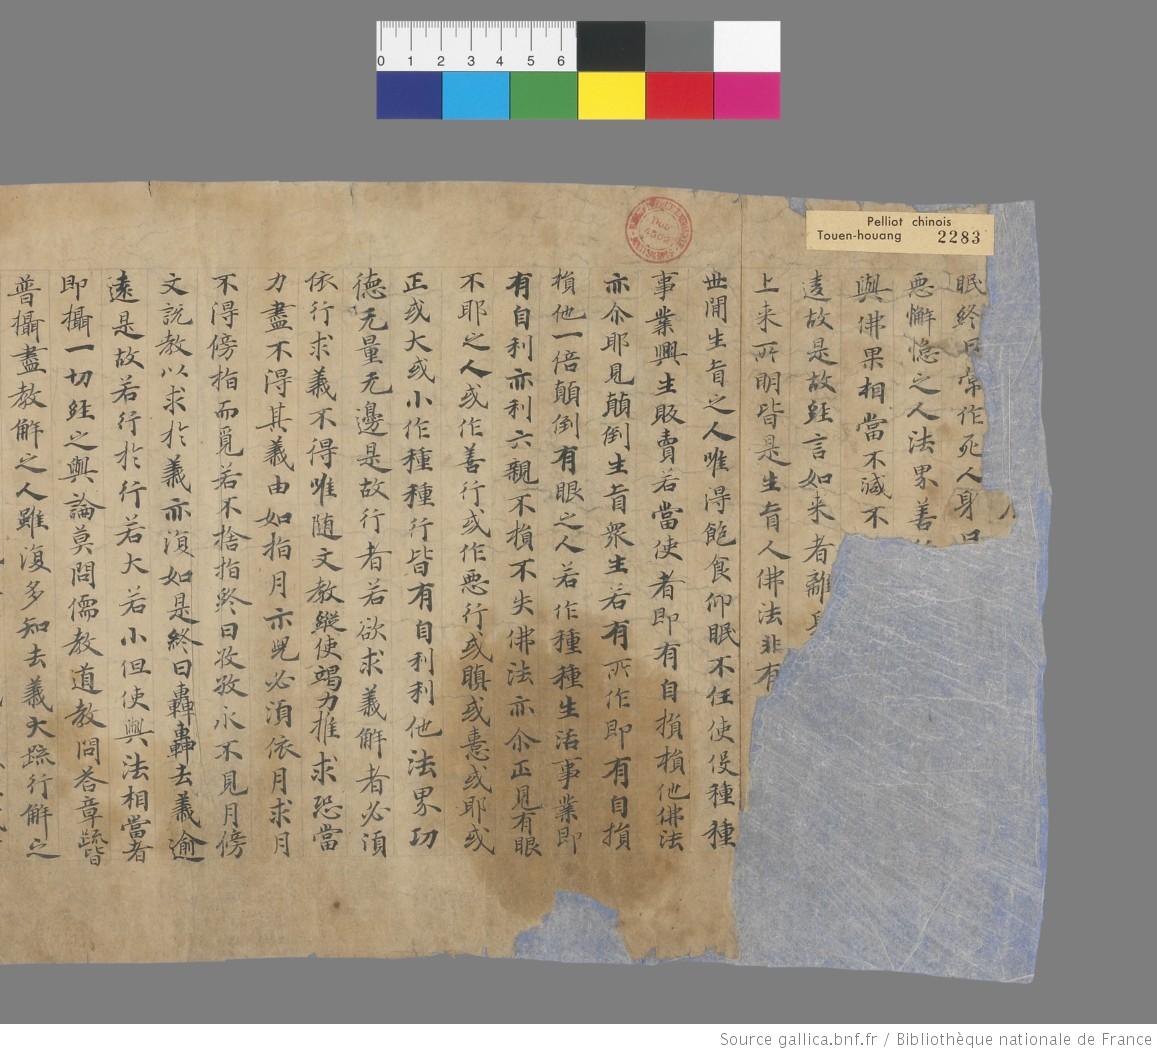 0 1 2 3 4 5 6
Pelliot chinois
Touen-houang 2283
眠終日常作死人身口
惡懈怠之人法界善
與佛果相當不減不
遠故是故經言如来者離
上来所明皆是生盲人佛法非有
世間生盲之人唯得飽食仰眠不任使役種種
事業興生販賣若當使者即有自損損他佛法
亦尒耶見顛倒生盲衆生若有所作即有自損
損他一倍顛倒有眼之人若作種種生活事業即
有自利亦利六親不損不失佛法亦尒正見有眼
不耶之人或作善行或作惡行或瞋或恚或耶或
正或大或小作種種行皆有自利利他法界功
德无量无邊是故行者若欲求義解者必湏
依行求義不得唯随文教縱使竭力推求恐當
力盡不得其義由如指月亦皃必湏依月求月
不得傍指而覓若不捨指終日孜孜永不見月傍
文説教以求於義亦湏如是終日轟轟去義逾
遠是故若行於行若大若小但使與法相當者
即攝一切經之與論莫問儒教道教問荅章疏皆
普攝盡教解之人雖復多知去義大疏行解之
Source gallica.bnf.fr / Bibliothèque nationale de France